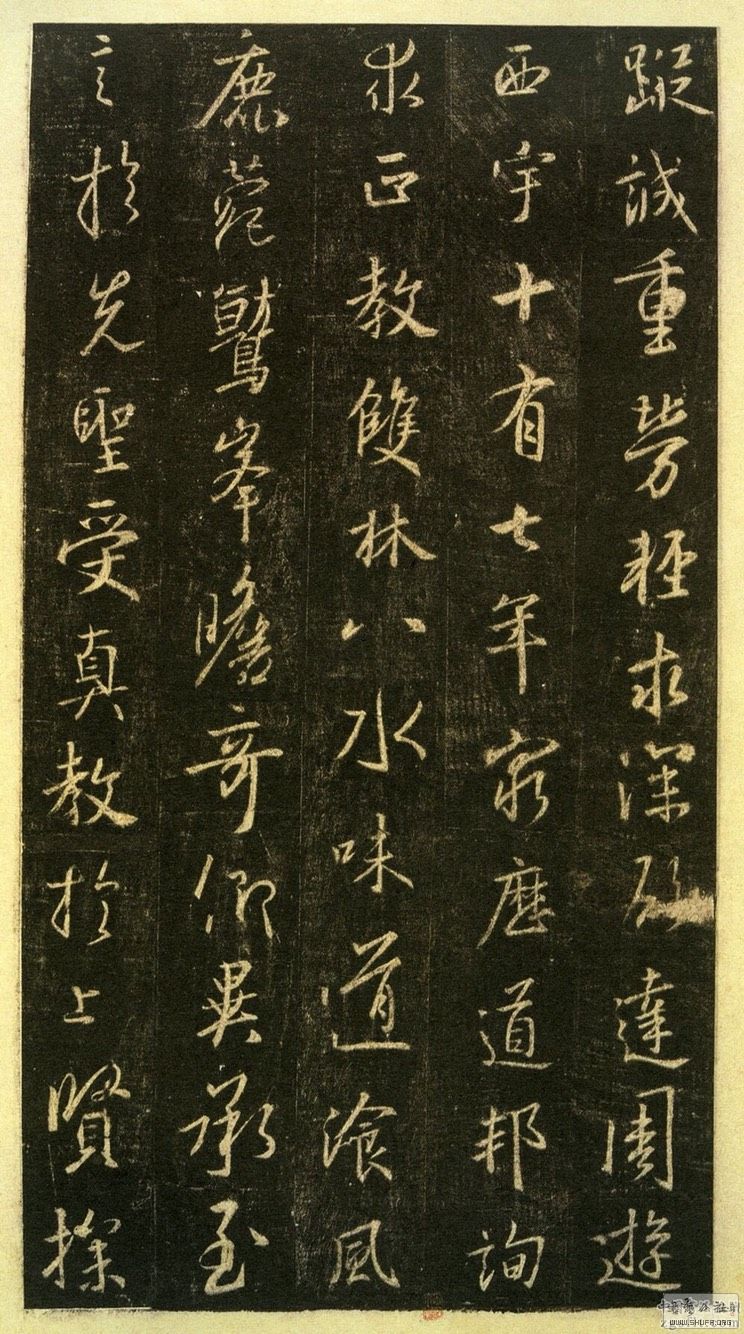 蹤誠重勞輕求深願達周遊
西宇十有七年窮歷道邦詢
求正教雙林八水味道湌風
鹿菀鷲峯瞻奇仰異承至
言於先聖受真教於上賢探
WWW.SHUFA.ORG